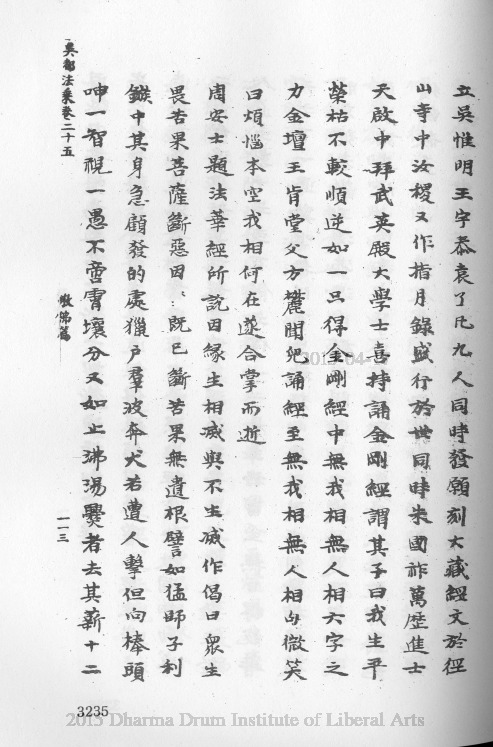 立吳惟明王宇泰袁了凡九人同時發願刻大藏經文於徑
山寺中汝稷又作指月錄盛行於世同時朱國祚萬歷進士
天啟中拜武英殿大學士喜持誦金剛經謂其子曰我生平
榮枯不較順逆如一只得金剛經中無我相無人相六字之
力金壇王肯堂父方麓聞兒誦經至無我相無人相句微笑
曰煩惱本空我相何在遂合掌而逝
周安士題法華經所說因緣生相滅與不生滅作偈曰眾生
畏苦果菩薩斷惡因因既已斷苦果無遺根譬如猛師子利
鏃中其身急顧發的處獵戶羣波奔犬若遭人擊但向棒頭
呻一智視一愚不啻霄壤分又如止沸湯爨者去其薪十二
吳都法乘卷二十五
散佛篇
一一三
3235
2015-04-
2015 Dharma Drum Institute of Liberal Arts